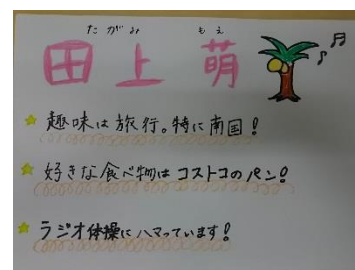 たがみ もえ
田上 萌
趣味は旅行。特に南国!
好きな食べ物はコストコのパン!
ラジオ体操にハマっています!